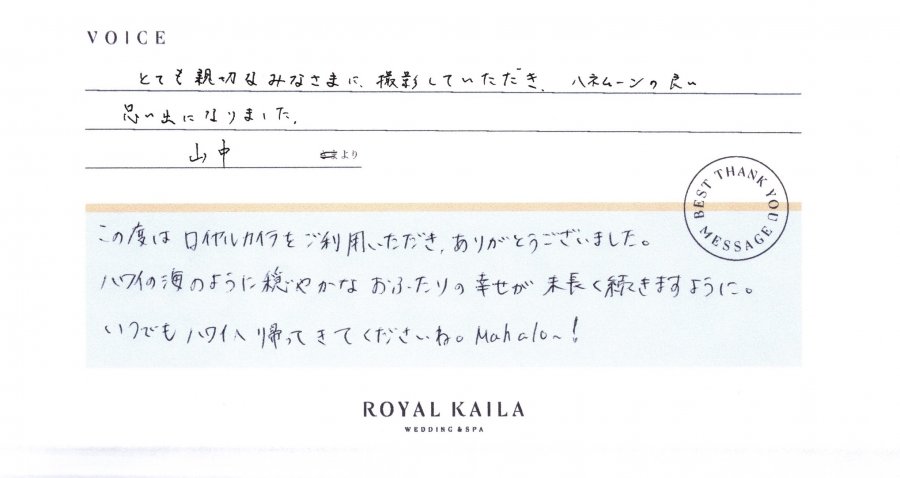 VOICE
とても親切なみなさまに、撮影していただき、ハネムーンの良い
思い出になりました。
山中 さまより
BEST THANK YOU MESSAGE
この度はロイヤルカイラをご利用いただき、ありがとうございました。
ハワイの海のように穏やかなおふたりの幸せが末長く続きますように。
いつでもハワイへ帰ってきてくださいね。Mahalo~!
ROYAL KAILA
WEDDING & SPA